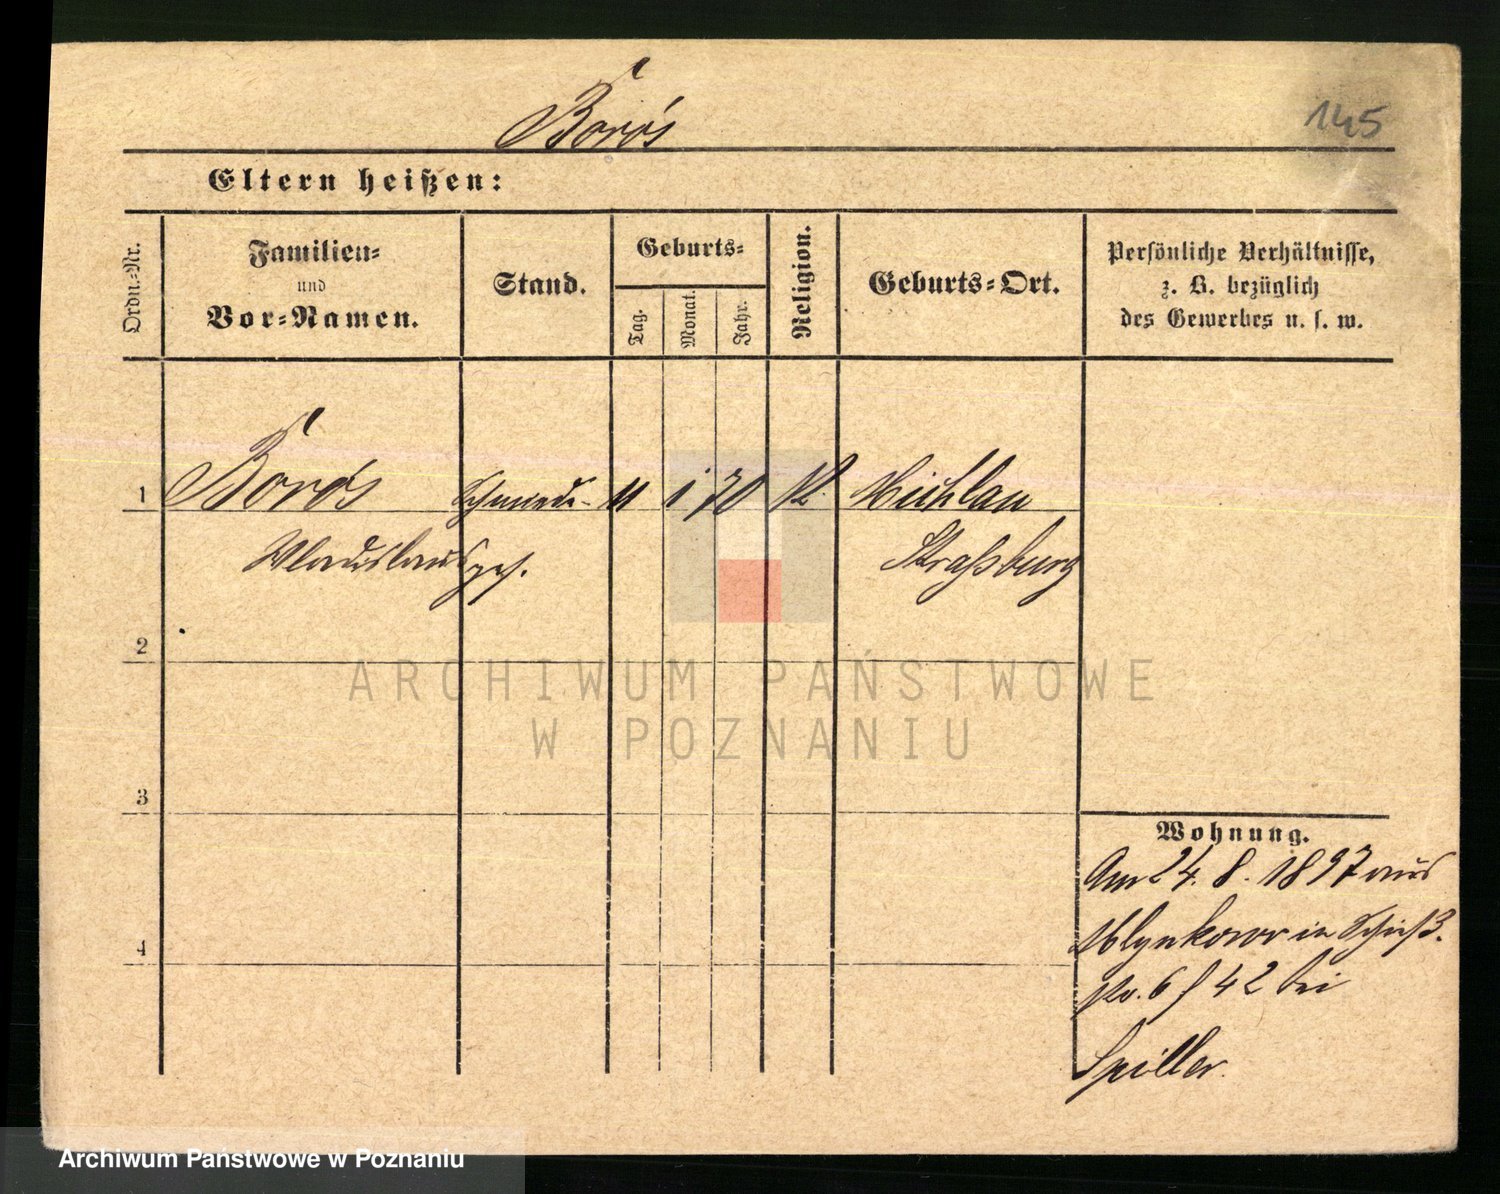 Borós
145
Eltern heißen:
Ordn.-Nr.
Familien-
und
Vor-Namen.
Stand.
Geburts-
Tag.
Monat.
Jahr.
Religion.
Geburts-Ort.
Persönliche Verhältnisse,
z. B. bezüglich
des Gewerbes u. s. w.
1 Borós Schmiede- 11 1 70 K. Michlau
Wladislaus ges. Straßburg
2
3
4
Wohnung.
Am 24. 8. 1897 aus
in Schieß-
str. 6 42 bei
Spiller.
ARCHIWUM PAŃSTWOWE
W POZNANIU
Archiwum Państwowe w Poznaniu